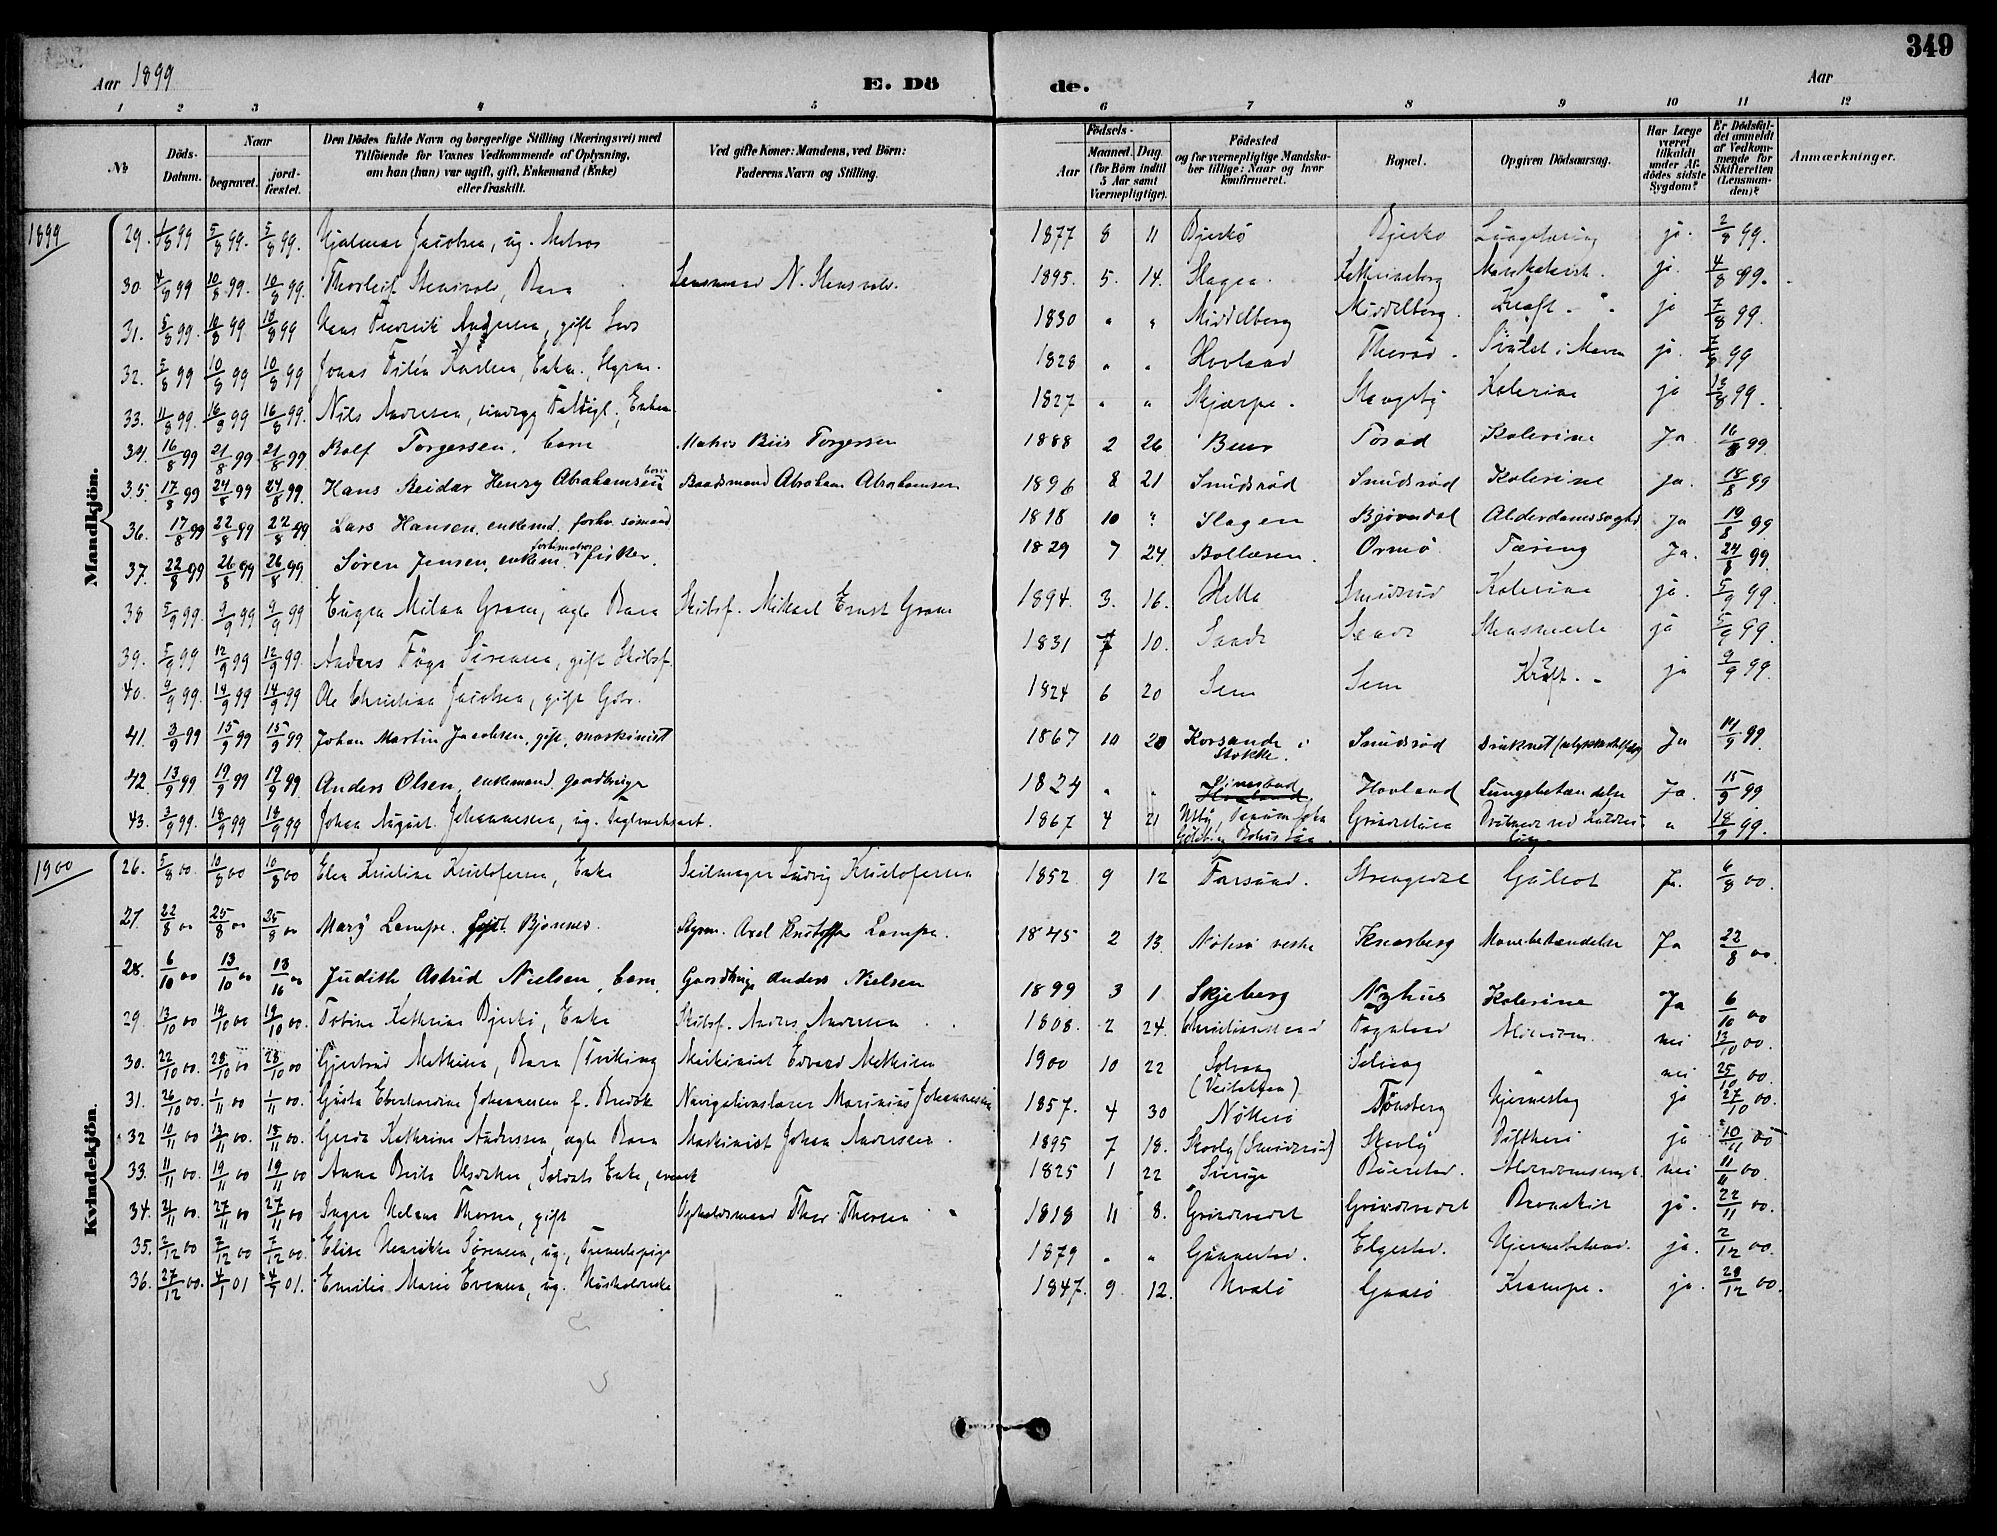 349
Aar 1899
E. Döde.
Aar
1 2 3 4 5 6 7 8 9 10 11 12
No
Döds-Datum.
Naar
begravet.
jord-fæstet.
Den Dödes fulde Navn og borgerlige Stilling (Næringsvei) med
Tilföiende for Voxnes Vedkommende af Oplysning,
om han (hun) var ugift, gift, Enkemand (Enke)
eller fraskilt.
Ved gifte Koner: Mandens, ved Börn:
Faderens Navn og Stilling.
Födsels-
Aar
Maaned. Dag
(for Börn indtil
5 Aar samt
Værnepligtige).
Födested
og for værnepligtige Mandska-
ber tillige: Naar og hvor
konfirmeret.
Bopæl.
Opgiven Dödsaarsag.
Har Læge
været
tilkaldt
under Af-
dödes sidste
Sygdom?
Er Dödsfal-
det anmeldt
af Vedkom-
mende for
Skifteretten
(Lensman-
den)?
Anmærkninger.
Mandkjön.
1899
29. 1/8 99 5/8 99. 5/8 99. Hjalmar Jacobsen, ug. Matros 1877 8 11 Bjerkö Bjerkö ja. 2/8 99.
30. 4/8 99 10/8 99. 10/8 99. Thorleif Stensvold, Barn Lensmand N. Stensvold. 1895. 5. 14. Slagen. Kathrineborg ja. 4/8 99.
31. 5/8 99. 10/8 99 10/8 99 Hans Fredrik Andersen, gift 1830 " " Middelborg Middelborg. Kræft. ja 7/8 99.
32. 5/8 99 10/8 99 10/8 99 Jonas Karlsen, Enkem., Styrm. 1828 " " Hovland ja. 7/8 99
33. 11/8 99. 16/8 99 16/8 99. Nils Andersen, Enkem 1827 " " Skjærpe. Kolerine ja 13/8 99.
34. 16/8 99 21/8 99 21/8 99 Rolf Torgersen, barn Matros Torgersen 1888 2 26 Torød Kolerine Ja 16/8 99.
35. 17/8 99 24/8 99 24/8 99. Hans Reidar Henry Abrahamsen barn Baadsmand Abraham Abrahamsen 1896 8 21 Smidsrød Smidsrød Kolerine Ja. 18/8 99
36. 17/8 99 22/8 99 22/8 99 Lars Hansen, enkemd. forhv. sömand 1818 10 " Slagen Bjørndal Alderdomssvaghed Ja 19/8 99.
37. 22/8 99 26/8 99 26/8 99 Søren Jensen, enkem. fisker. 1829 7 24. Bollæren. Ormö. Tæring Ja. 24/8 99.
38 5/9 99. 9/9 99 9/9 99 Eugen Milan Gram, ægte Barn Skibsf. Mikael Ernst Gram 1894. 3. 16. Hella Smidsrød Kolerine ja. 5/9 99.
39. 5/9 99 12/9 99 12/9 99. Anders Sørensen, gift Skibsf. 1831 7 10. Sande Sande ja 5/9 99.
40. 9/9 99. 14/9 99 14/9 99 Ole Christian Jacobsen, gift Gbr. 1824 6 20 Sem Sem Kræft. ja 9/9 99.
41. 3/9 99 15/9 99 15/9 99 Johan Martin Jacobsen, gift, maskinist 1867 10 20 Korsande i Stokke. Smidsrød Druknet Ja 11/9 99.
42. 13/9 99 19/9 99 19/9 99 Anders Olsen, enkemand gaardbruger 1824 " " Hovland Hovland Lungebetændelse Ja. 15/9 99
43. 3/9 99. 18/9 99 18/9 99 Johan August Johannessen, ug. Teglverksarb. 1867 4 21 " 18/9 99.
Kvindekjön.
1900
26. 5/8 00 10/8 00 10/8 00 Elen Kristine Kristofersen, Enke Seilmager Ludvig Kristofersen 1852. 9 12 Farsund. Gulsot Ja. 6/8 00.
27. 22/8 00 25/8 00 25/8 00 Mary Lempe. født Bjønnes. Styrm. Axel Lempe. 1845 2 13. Nöterö Knarberg Mavebetændelse Ja 23/8 00.
28. 6/10 00 13/10 00 13/10 00 Judith Astrid Nielsen, barn. Gaardbruger Anders Nielsen 1899 3 1 Skjeberg Nyhus Kolerine Ja 6/10 00
29. 13/10 00 19/10 00 19/10 00. Tobine Kathrine Bjerkö, Enke Skibsf. Anders Andersen 1808. 2 24. Christianssund Fagerland nei 13/10 00.
30. 22/10 00. 28/10 00 28/10 00 Gjertrud Mathisen, Barn (Tvilling Maskinist Edvard Mathisen 1900 10 22 Solvang Solvang " nei 25/10 00.
31. 26/10 00. 1/11 00 1/11 00. Gusta Eberhardine Johannessen f. Bredok Navigationslærer Marinius Johannessen 1857. 4 30 Nötterö Tönsberg Hjerneslag ja 27/10 00.
32 10/11 00 13/11 00. 13/11 00. Gerda Kathrine Andersen, ægte Barn Maskinist Johan Andersen. 1895 7 18. Skovly (Smidsrød) Skovly Diftheri ja 10/11 00
33. 11/11 00. 19/11 00 19/11 00. Anna Brita Olsdatter, Soldats Enke, 1825 1 22 Sverige nei 11/11 00.
34. 21/11 00. 27/11 00 27/11 00 Inger Helene Thorsen, gift Thor Thorsen 1818 11 8. Grindervedet Grindervedet Bronkit ja. 22/11 00.
35. 2/12 00 7/12 00 7/12 00. Elise Henrikke Sørensen, ug., Tjenestepige 1879 " " Gunnestad. Elgestad. Hjernebetænd. ja. 2/12 00.
36. 27/12 00. 4/1 01 4/1 01. Emilie Marie Evensen, ug. Husholderske 1847. 9. 12. Hvalö Gaasö Krampe. ja. 28/12 00.